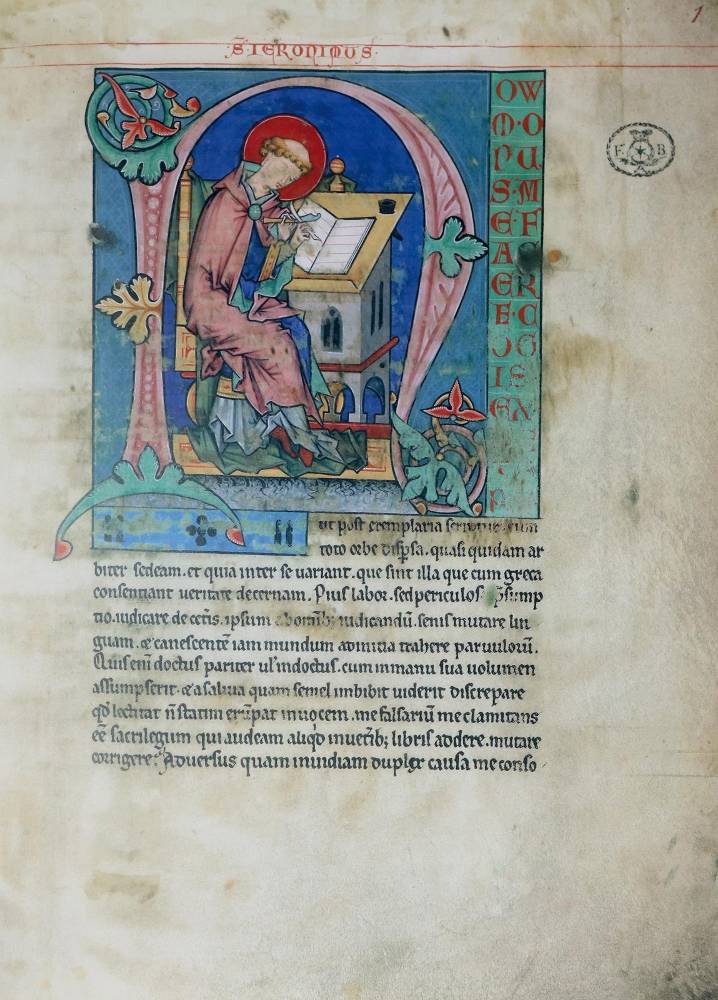 1
S IERONIMUS
F B
OW
M·O
N U
S·M
E·F
A
E R
E·C
IS
EX
P
ut post exemplaria
toto orbe dispsa. quasi quidam ar
biter sedeam. et quia inter se uariant. que sint illa que cum greca
consentiant ueritate decernam. Pius labor. sed periculosa psump
tio. iudicare de cetis. ipsum iudicandū. senis mutare lin
guam. & canescentē iam mundum ad initia trahere paruulorū.
Quis enī doctus pariter ul' indoctus. cum in manu sua uolumen
assumpserit. & a saliua quam semel imbibit uiderit discrepare
qd lectitat n̄ statim erūpat in uocem. me falsariū me clamitans
eē sacrilegum qui audeam aliqd in uetib; libris addere. mutare
corrigere. Aduersus quam inuidiam duplex causa me conso